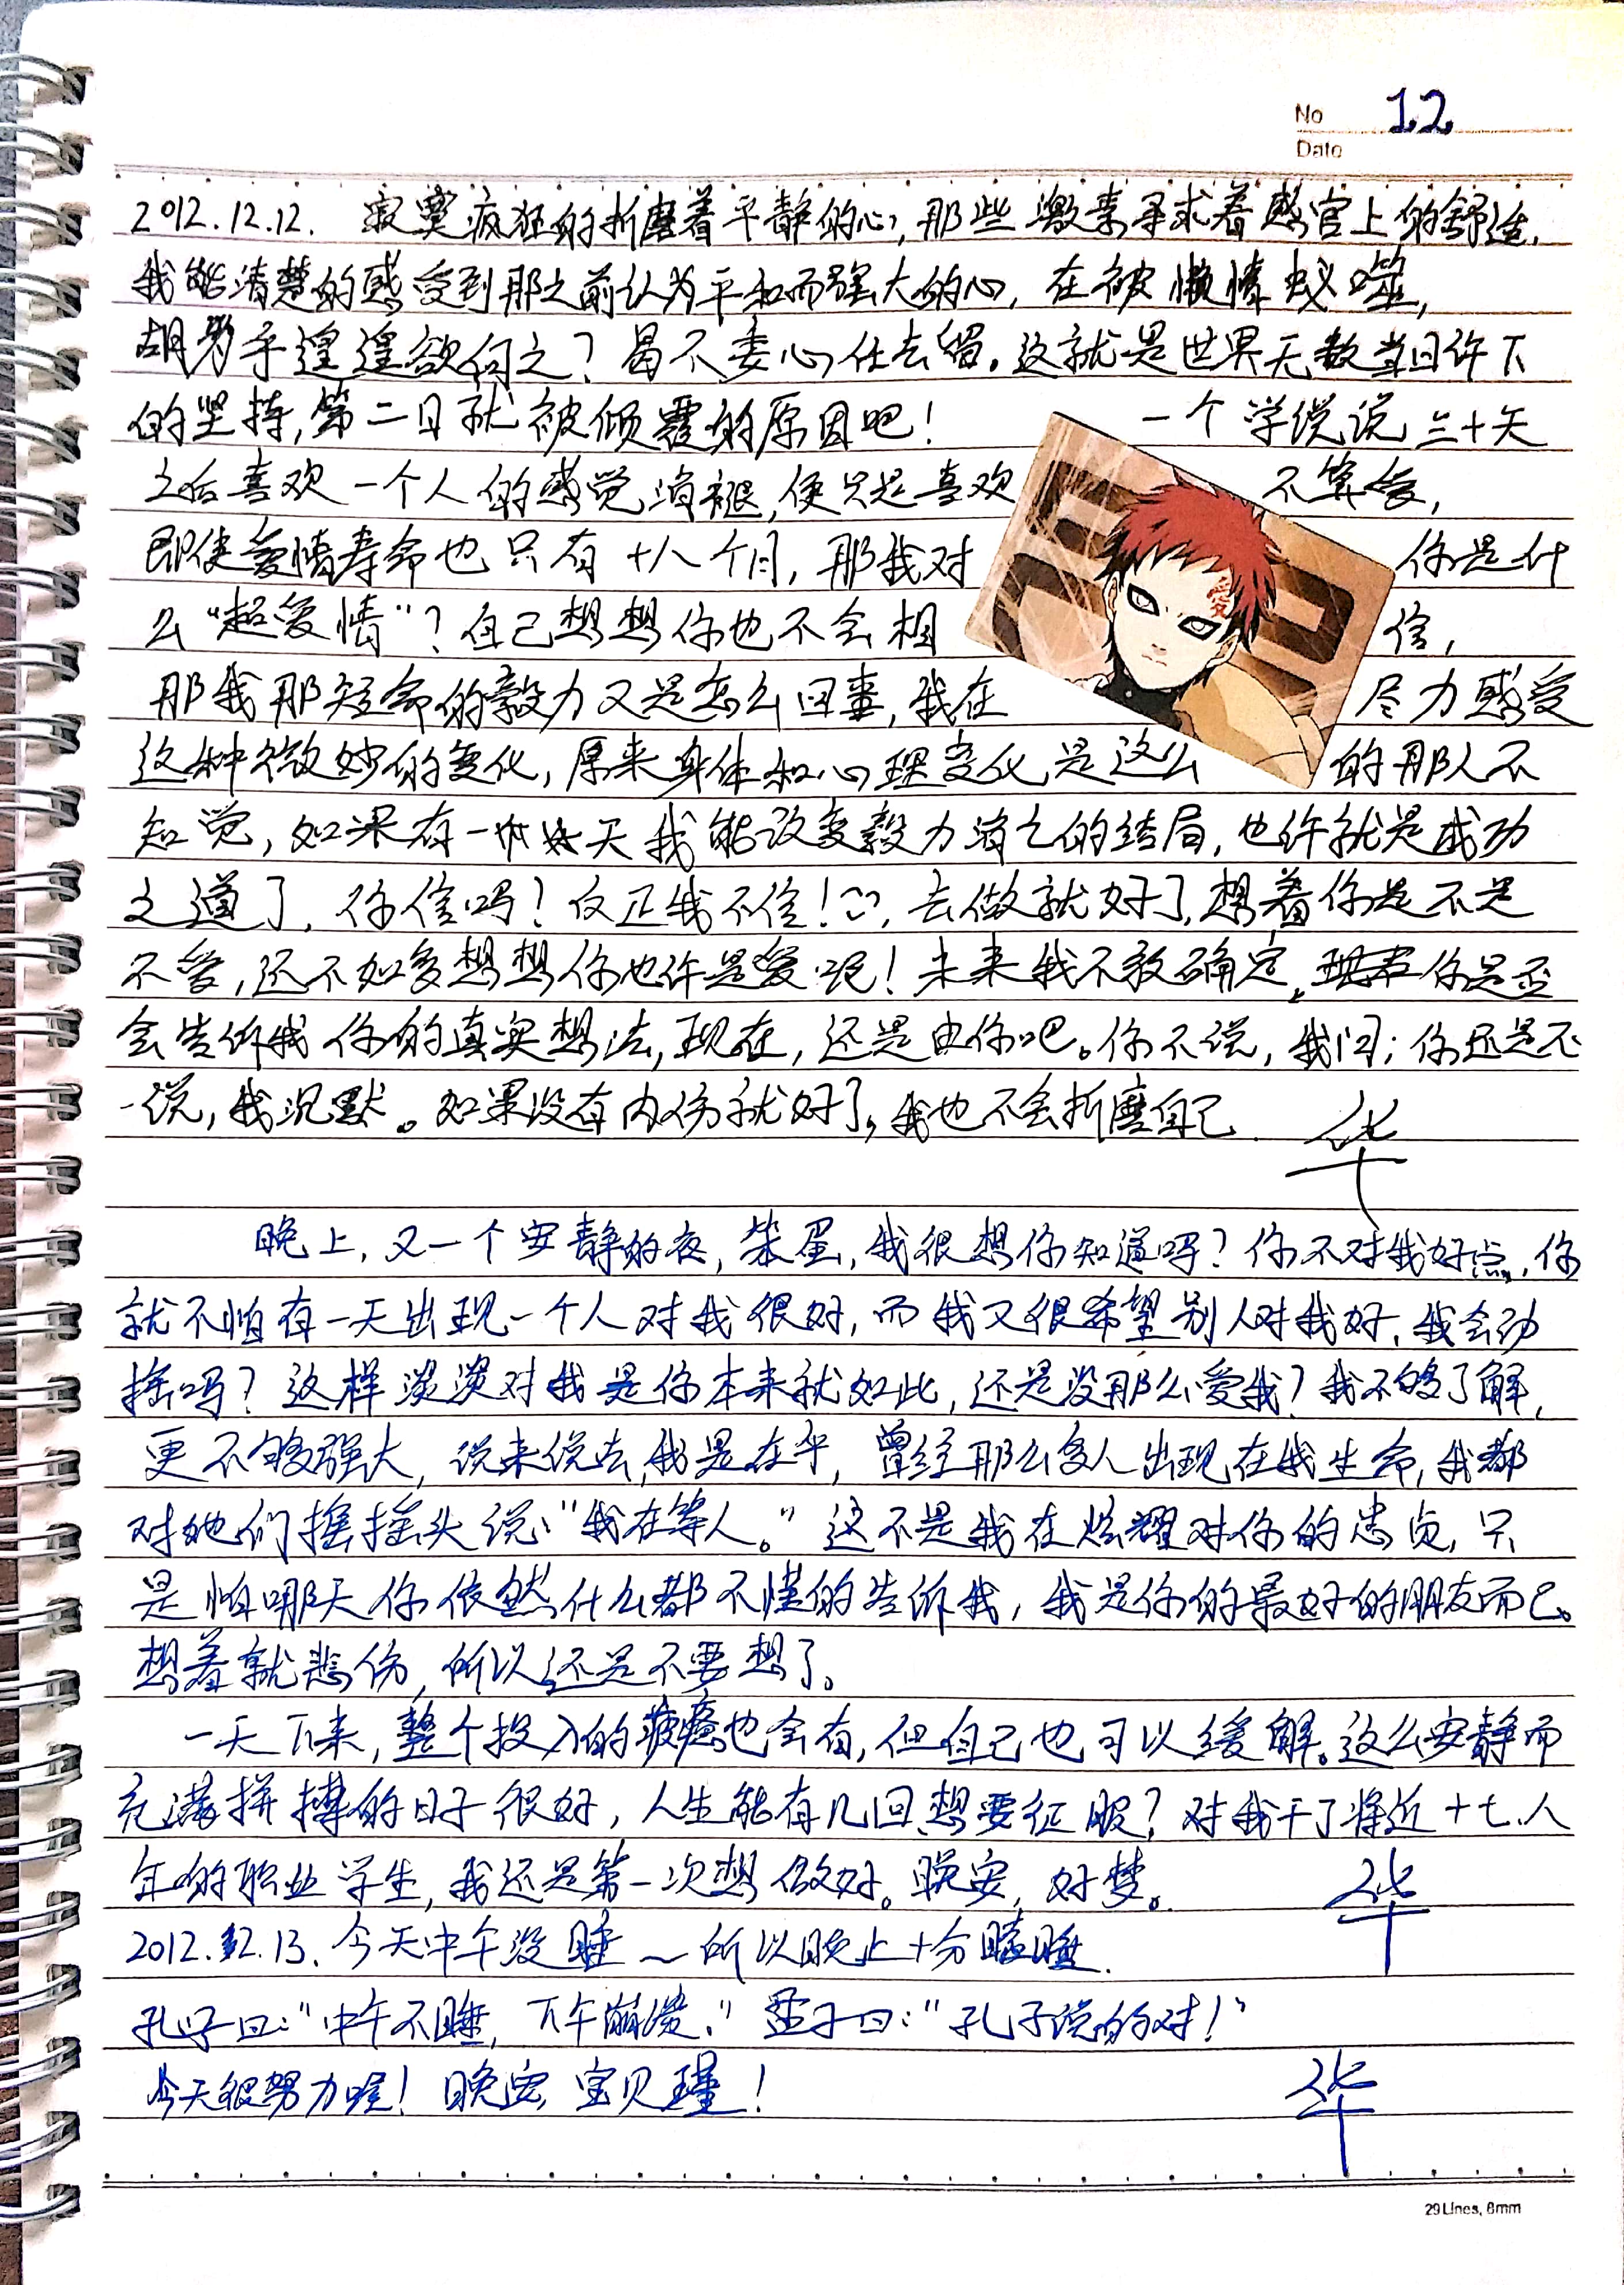 No 12
Date
2012.12.12. 寂寞疯狂的折磨着平静的心,那些激素寻求着感官上的舒适.
我能清楚的感受到那之前认为平和而强大的心,在被懒惰蚁噬,
胡为乎遑遑欲何之?曷不委心任去留。这就是世界无数当日许下
的坚持,第二日就被倾覆的原因吧! 一个学说说三十天
之后喜欢一个人的感觉消褪,便只是喜欢 不算爱,
即使爱情寿命也只有十八个月,那我对 你是什
么“超爱情”?自己想想你也不会相 信,
那我那短命的毅力又是怎么回事,我在 尽力感受
这种微妙的变化,原来身体和心理变化是这么 的那人不
知觉,如果有一天我能改变毅力消亡的结局,也许就是成功
之道了,你信吗?反正我不信!去做就好了,想着你是不是
不爱,还不如多想想你也许是爱呢!未来我不敢确定,你是否
会告诉我你的真实想法,现在,还是由你吧。你不说,我问;你还是不
说,我沉默。如果没有内伤就好了,我也不会折磨自己. 华
晚上,又一个安静的夜,笨蛋,我很想你知道吗?你不对我好点,你
就不怕有一天出现一个人对我很好,而我又很希望别人对我好,我会动
摇吗?这样淡淡对我是你本来就如此,还是没那么爱我?我不够了解,
更不够强大,说来说去,我是在乎,曾经那么多人出现在我生命,我都
对她们摇摇头说:“我在等人。”这不是我在炫耀对你的忠贞,只
是怕哪天你依然什么都不懂的告诉我,我是你的最好的朋友而已。
想着就悲伤,所以还是不要想了。
一天下来,整个投入的疲惫也会有,但自己也可以缓解。这么安静而
充满拼搏的日子很好,人生能有几回想要征服?对我干了将近十七、八
年的职业学生,我还是第一次想做好。晚安,好梦。 华
2012.12.13. 今天中午没睡~所以晚上十分瞌睡.
孔子曰:“中午不睡,下午崩溃.”孟子曰:“孔子说的对!”
今天很努力喔!晚安,宝贝瑾! 华
29 Lines, 8mm